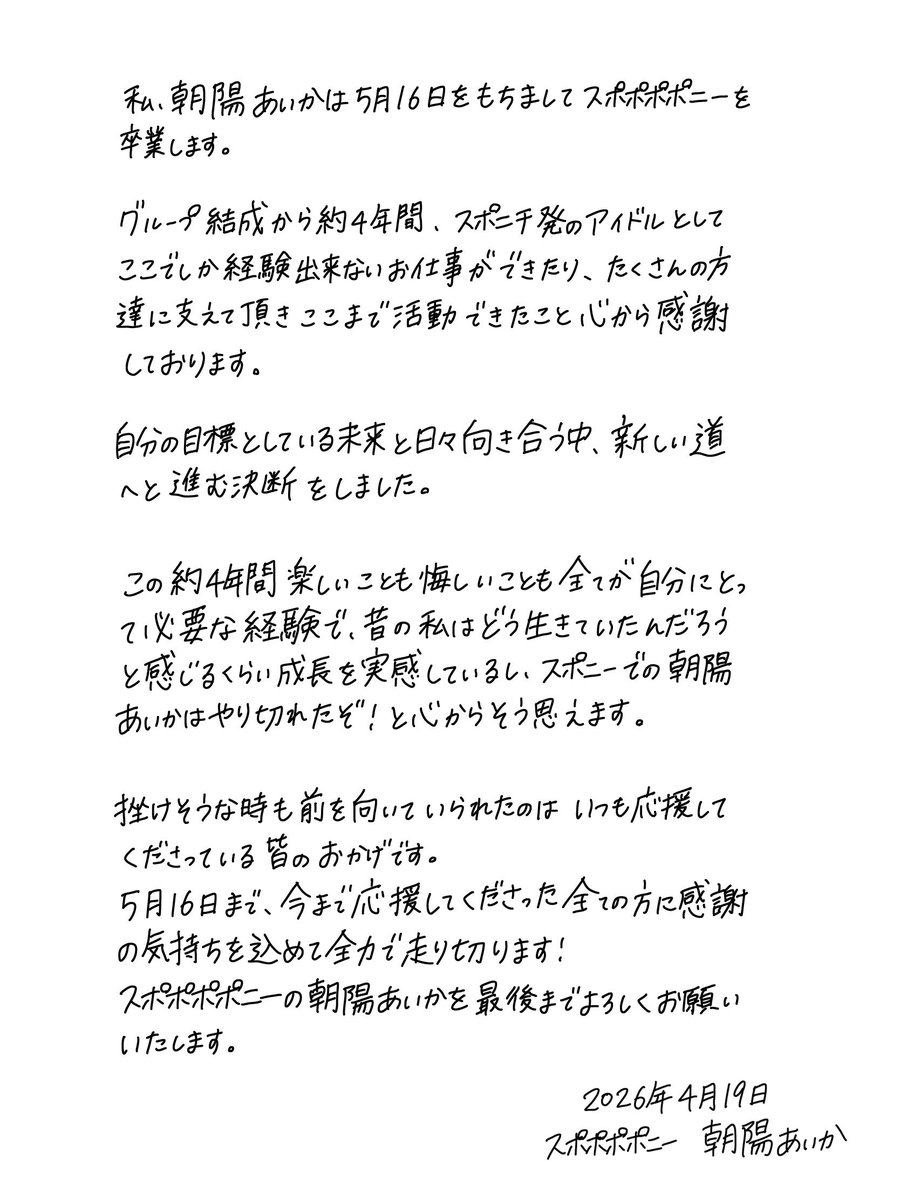 私、朝陽あいかは5月16日をもちましてスポポポポニーを
卒業します。
グループ結成から約4年間、スポニチ発のアイドルとして
ここでしか経験出来ないお仕事ができたり、たくさんの方
達に支えて頂きここまで活動できたこと心から感謝
しております。
自分の目標としている未来と日々向き合う中、新しい道
へと進む決断をしました。
この約4年間楽しいことも悔しいことも全てが自分にとっ
て必要な経験で、昔の私はどう生きていたんだろう
と感じるくらい成長を実感しているし、スポニーでの朝陽
あいかはやり切れたぞ！と心からそう思えます。
挫けそうな時も前を向いていられたのはいつも応援して
くださっている皆のおかげです。
5月16日まで、今まで応援してくださった全ての方に感謝
の気持ちを込めて全力で走り切ります！
スポポポポニーの朝陽あいかを最後までよろしくお願い
いたします。
2026年4月19日
スポポポポニー 朝陽あいか